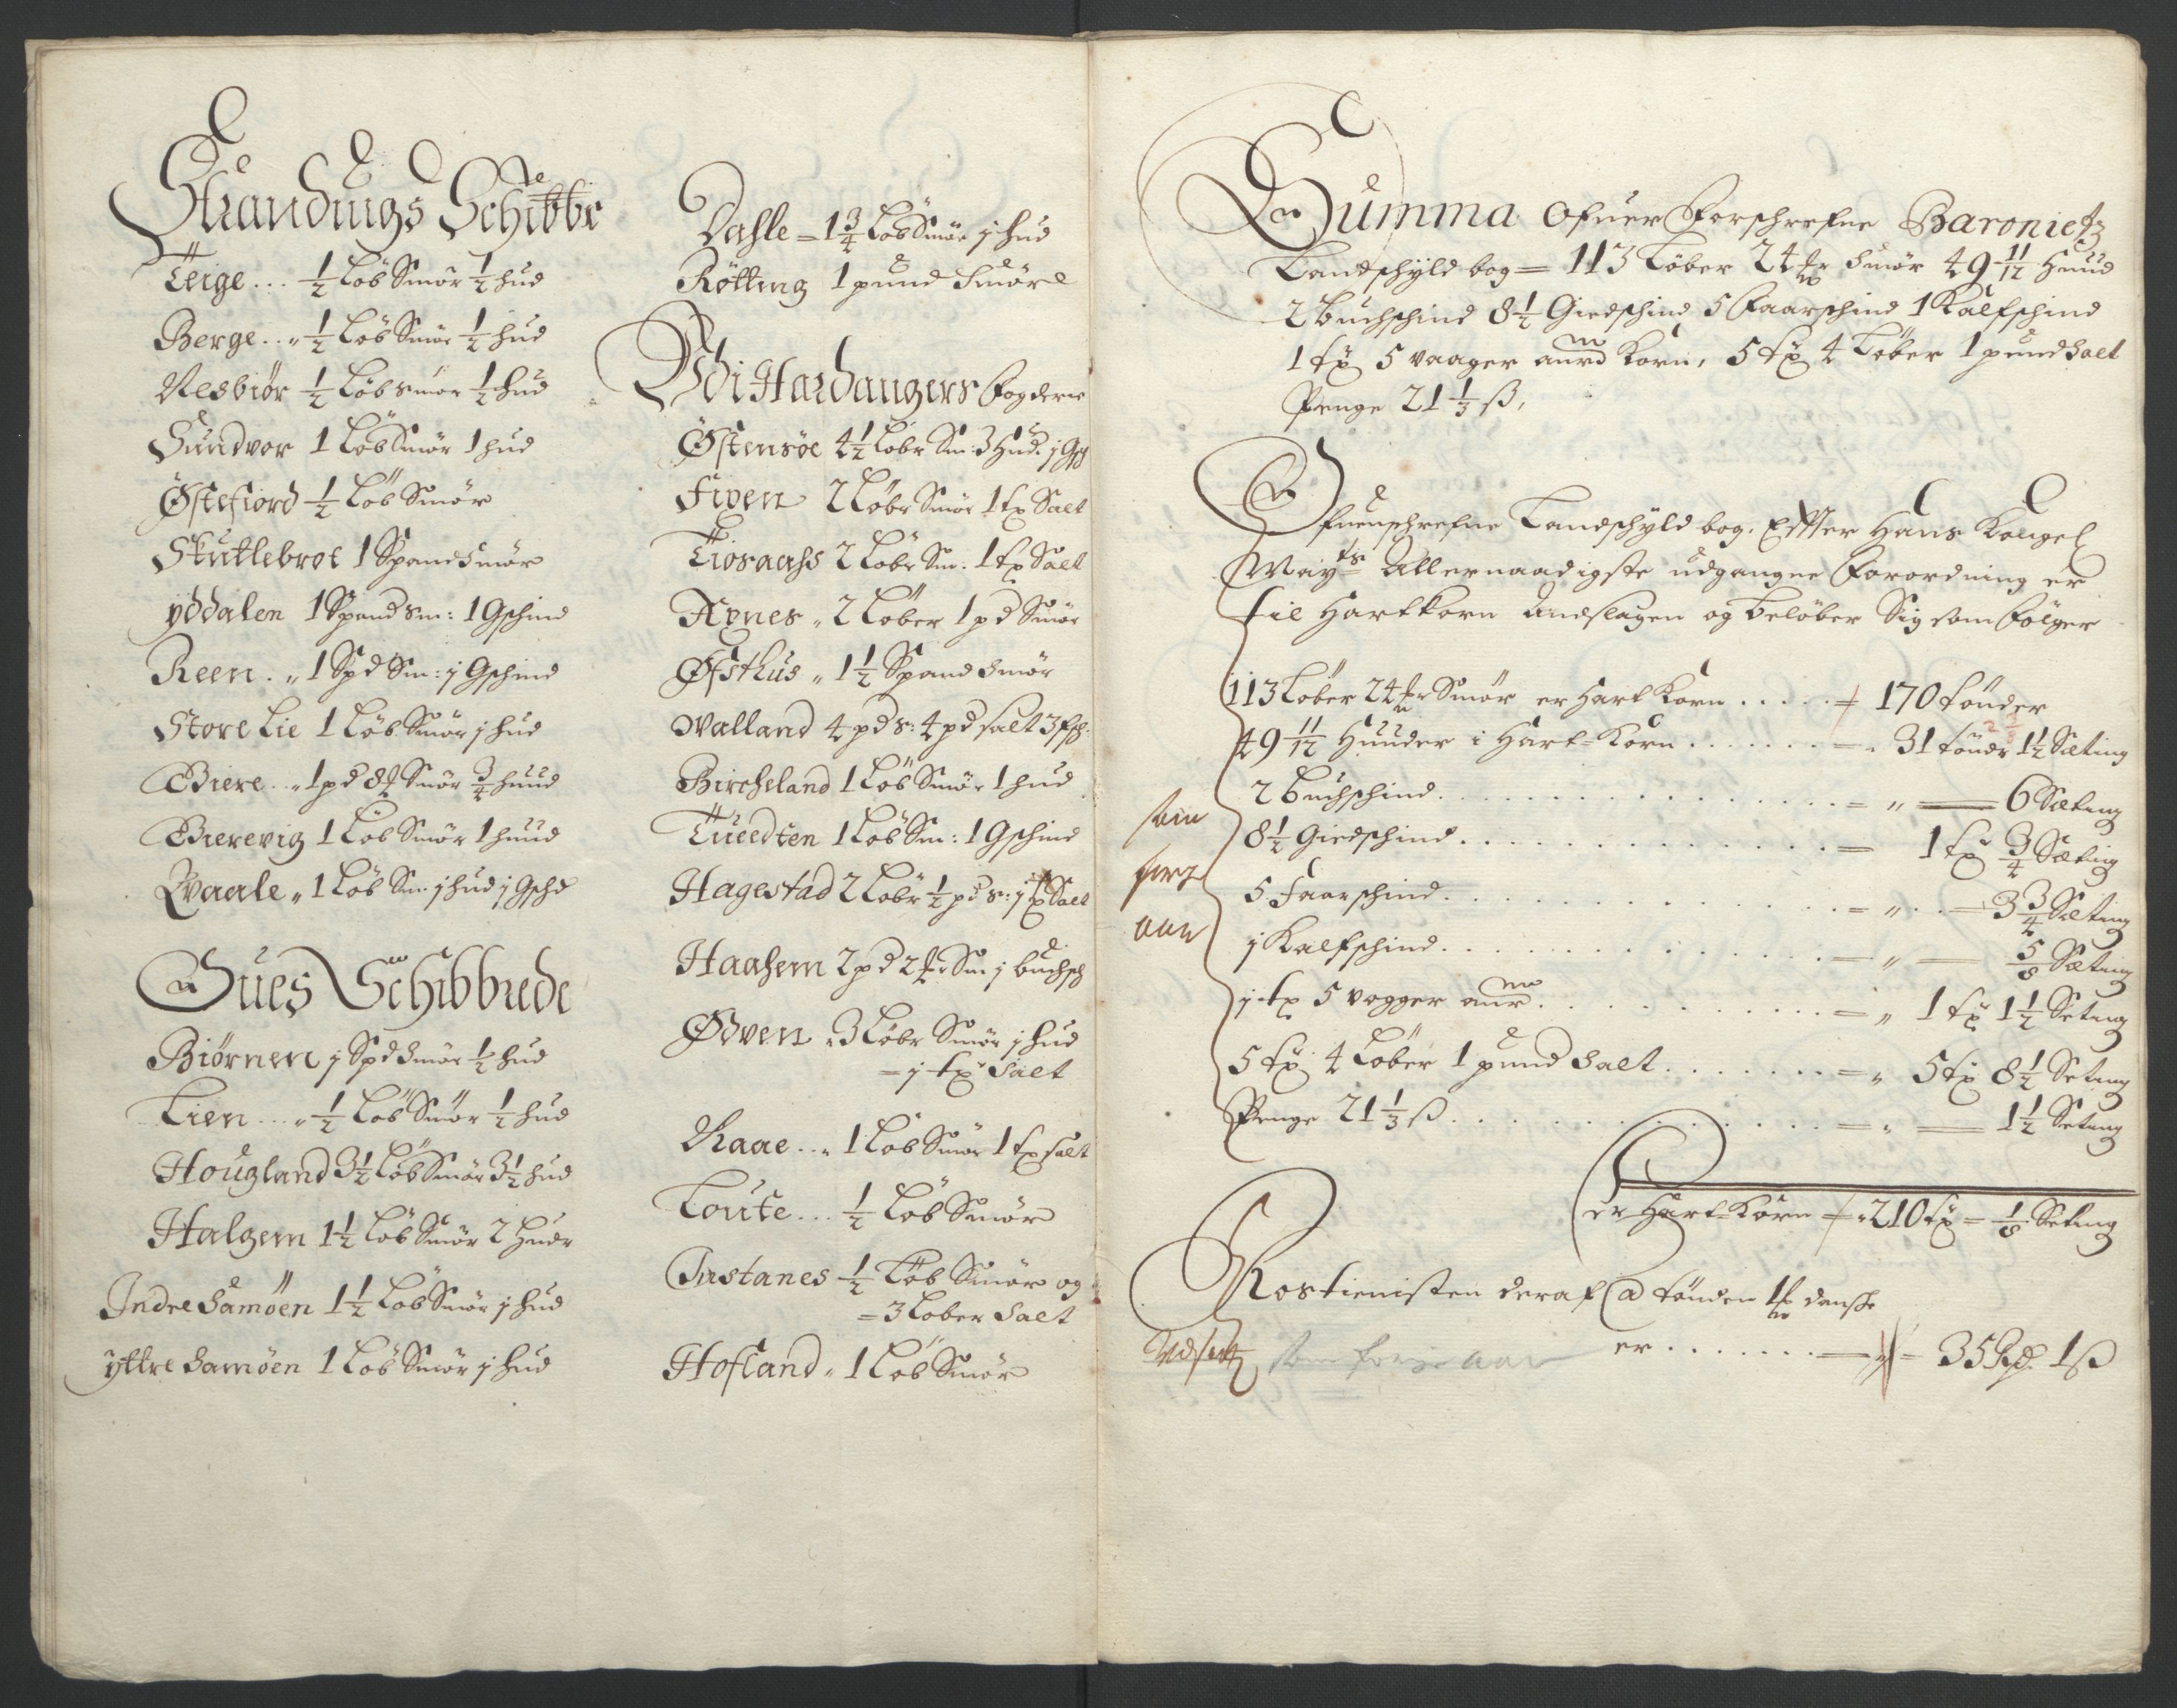 Strandings Schibbr
Teige... ½ Løb Smør ½ hud
Berge.. „ ½ Løb Smør ½ hud
Nesbiør ½ Løb smør ½ hud
Sundvor 1 Løb Smør 1 hud
Østefiord ½ Løb Smør
Skutlebrot 1 Spand Smør
yddalen 1 Spand Sm: 1 Gschind
Reen. „ 1 Spd Sm: j Gschind
Store Lie 1 Løb Smør j hud
Giere.. „ 1 pd Smør ¾ huud
Gierevig 1 Løb Smør 1 huud
Qvaale „ 1 Løb Sm. j hud j Gschd
Gues Schibbrede
Biørnen j Spd Smør ½ hud
Lien... „ ½ Løb Smør ½ hud
Hougland 3½ Løb Smør 3½ hud
Halgem 1½ Løb Smør 2 Huder
Indre Samøen 1½ Løb Smør j hud
yttre Samøen 1 Løb Smør j hud
Dahle = 1¾ Løb Smør j hud
Røtting 1 pund Smøre
Udi Hardangers Fogderie
Østensøe 4½ Løbr Sm: 3 Hud. j Gsch
Fixen 2 Løbr Smør 1 tø Salt
Tiosaahs 2 Løbr Sm. 1 tø Salt
Axnes „ 2 Løber 1 pd Smør
Østhus „ 1½ Spand Smør
Walland 4 pd s: 4 pd salt 3 fsch.
Bircheland 1 Løb Smør 1 hud
Tueedten 1 Løb Sm: 1 Gschind
Hagestad 2 Løbr ½ pd s: j tø Salt
Haahem 2 pd 2 Sm j buchsch
Ødven „ 3 Løbr Smør j hud
= j tø Salt
Raae.. „ 1 Løb Smør 1 tø salt
Loute... ½ Løb Smør
Iastanes ½ Løb Smør og
= 3 Løber Salt
Hofland „ 1 Løb Smør
Summa Ofuer Forschrefne Baronietz
Landschyld bog = 113 Løber 24 Smør 49 11/12 Huud
2 Buchschind 8½ Giedschind 5 Faarschind 1 Kalfschind
1 tø 5 vaager aurd Korn, 5 tø 4 Løber 1 pund Salt
Penge 21⅓ ß,
Ofuenschrefne Landschyld bog. Effter Hans Kongel
Mayts Allernaadigste udgangne Forordning er
til Hartkorn Anslagen og beløber Sig som følger
113 Løber 24 Smør er Hart Korn ..... = 170 tønder
49 11/12 Huuder i Hart=Korn ....... = . 31 tøndr 1½ Sæting
2 Buchschind ........ = „ — 6 Sæting
8½ Giedschind ........ = 1 tø ¾ Sæting
5 Faarschind ........ = „ .. — 3¾ Sæting
j Kalfschind ........ — „ — ⅝ Sæting
j tø 5 vogger aur ........ = „ 1 tø 1½ Seting
5 tø 4 Løber 1 pund Salt ....... = „ 5 tø 8½ Seting
Penge 21⅓ ß ........ = „ — 1½ Seting
som
forr
aar
er Hart=Korn = „ 210 tø = ⅛ Seting
Rostienisten deraf @ tønden danske
er ....... = 35 Rd. 1 ß